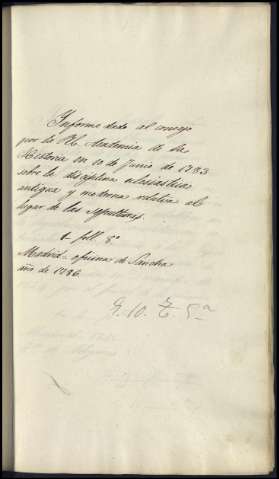 Informe dado al consejo
por la Rl. Academia de la
Historia en 10 de Junio de 1783
sobre la disciplina eclesiastica
antigua y moderna relativa al
lugar de las sepulturas.
1 foll. 8º
Madrid - oficina de Sancha
año de 1786.
G. 10. T. 5ª